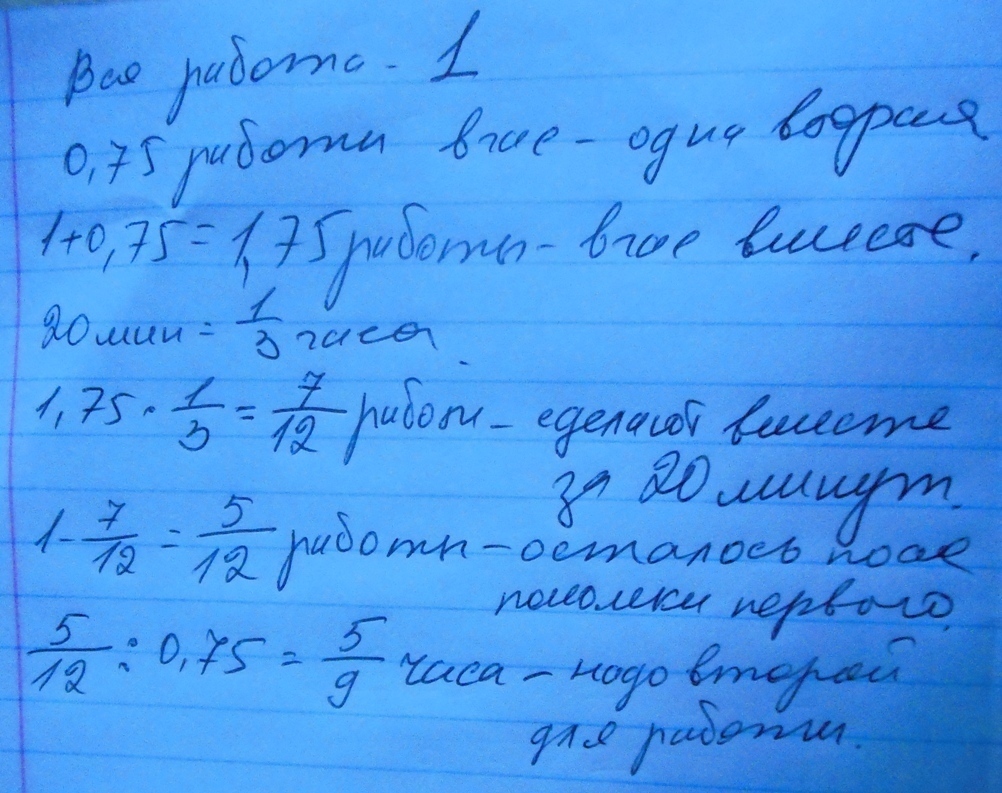 Вся работа - 1
0,75 работы в час - одна вторая
1+0,75 = 1,75 работы - в час вместе.
20 мин = 1/3 часа
1,75 · 1/3 = 7/12 работы - сделают вместе
за 20 минут.
1 - 7/12 = 5/12 работы - осталось после
поломки первого.
5/12 : 0,75 = 5/9 часа - надо второй
для работы.